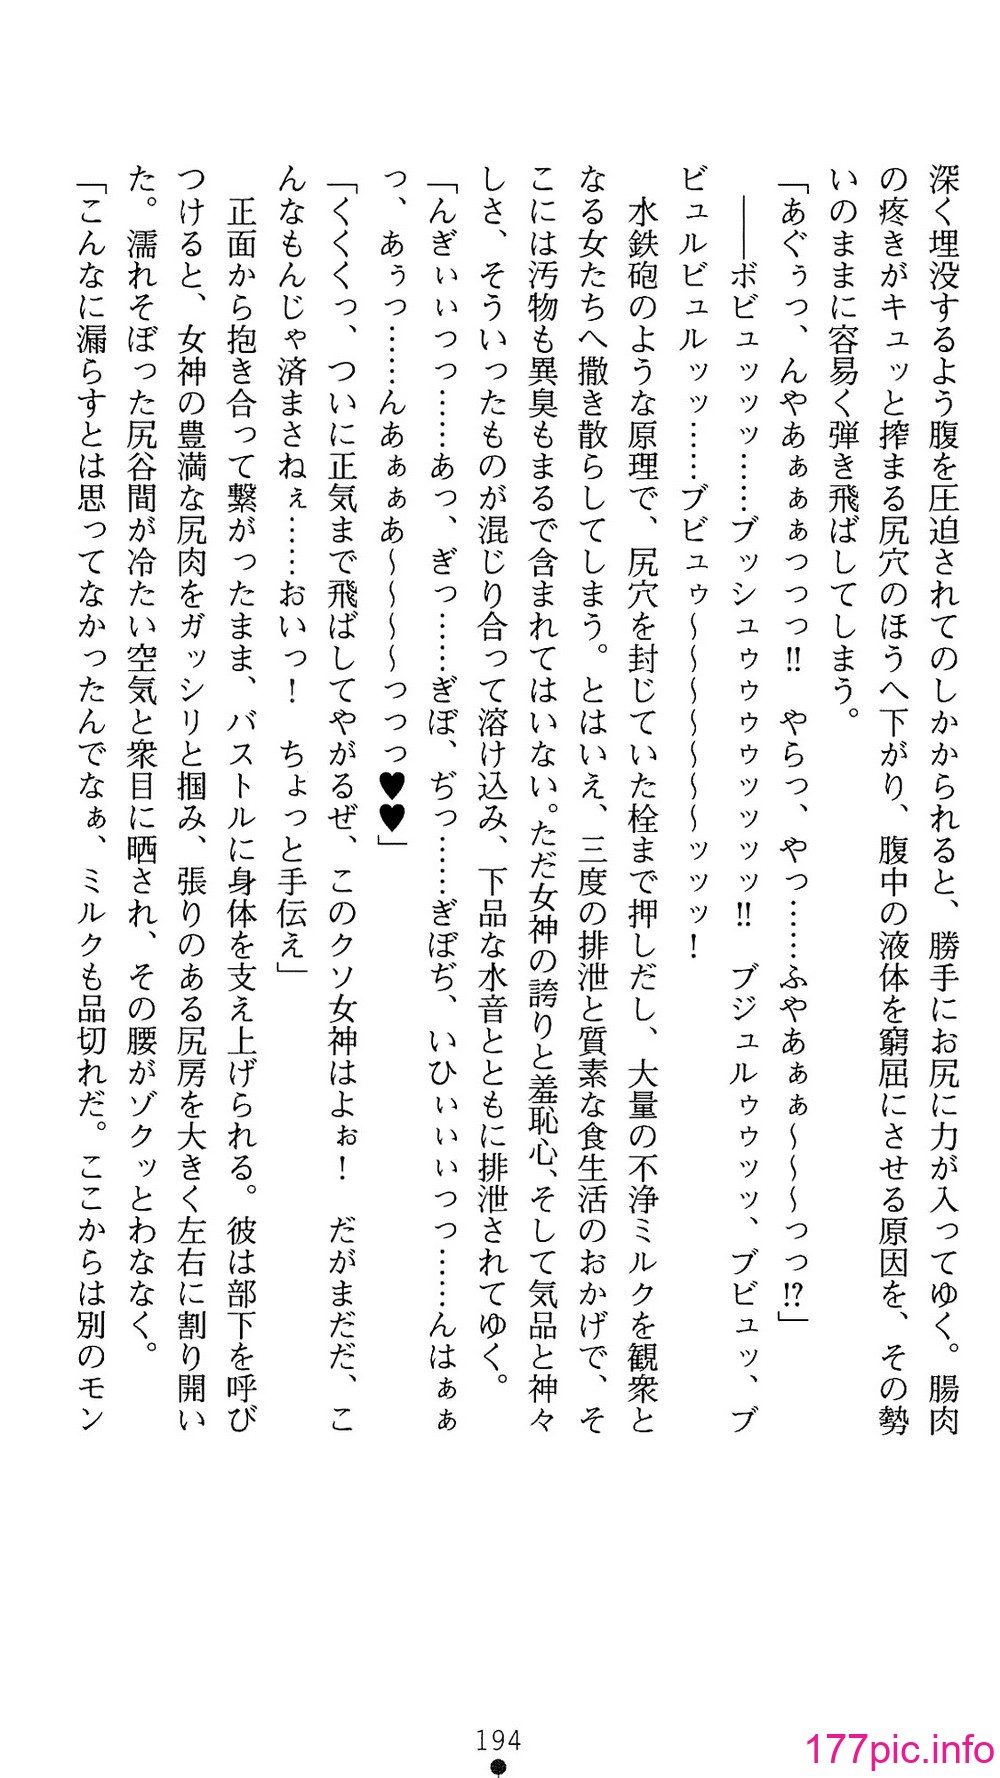 深く埋没するよう腹を圧迫されてのしかかられると、勝手にお尻に力が入ってゆく。腸肉
の疼きがキュッと搾まる尻穴のほうへ下がり、腹中の液体を窮屈にさせる原因を、その勢
いのままに容易く弾き飛ばしてしまう。
「あぐぅっ、んやあぁぁぁっっっ!!　やらっ、やっ……ふやあぁぁ～～～っっ!?」
――ボビュッッッ……ブッシュゥゥゥゥッッッッ!!　ブジュルゥゥッッ、ブビュッ、ブ
ビュルビュルッッ……ブビュゥ～～～～～～～ッッッ！
水鉄砲のような原理で、尻穴を封じていた栓まで押しだし、大量の不浄ミルクを観衆と
なる女たちへ撒き散らしてしまう。とはいえ、三度の排泄と質素な食生活のおかげで、そ
こには汚物も異臭もまるで含まれてはいない。ただ女神の誇りと羞恥心、そして気品と神々
しさ、そういったものが混じり合って溶け込み、下品な水音とともに排泄されてゆく。
「んぎぃぃっっ……あっ、ぎっ……ぎぼ、ぢっ……ぎぼぢ、いひぃぃぃっっ……んはぁぁ
っ、あぅっ……んあぁぁあ～～～～っっっ♥♥」
「くくくっ、ついに正気まで飛ばしてやがるぜ、このクソ女神はよぉ！　だがまだだ、こ
んなもんじゃ済まさねぇ……おいっ！　ちょっと手伝え」
正面から抱き合って繋がったまま、バストルに身体を支え上げられる。彼は部下を呼び
つけると、女神の豊満な尻肉をガッシリと掴み、張りのある尻房を大きく左右に割り開い
た。濡れそぼった尻谷間が冷たい空気と衆目に晒され、その腰がゾクッとわななく。
「こんなに漏らすとは思ってなかったんでなぁ、ミルクも品切れだ。ここからは別のモン
194
177pic.info